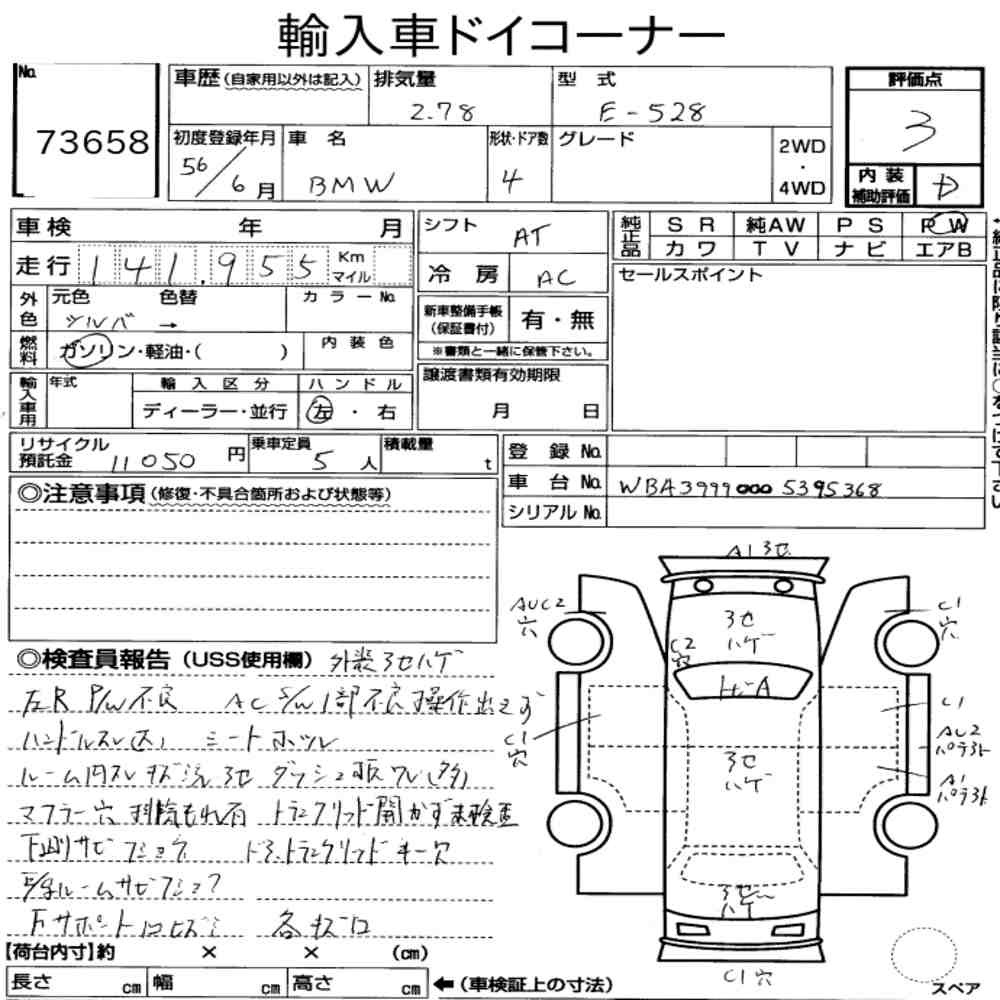 輸入車ドイコーナー
No. 73658
車歴(自家用以外は記入) 排気量 2.78 型式 E-528
評価点 3
初度登録年月 56/6月 車名 BMW 形状・ドア数 4 グレード 2WD・4WD
内装補助評価 D
車検 年 月 シフト AT
純正品 SR 純AW PS PW
カワ TV ナビ エアB
走行 141.955 Km マイル
冷房 AC
セールスポイント
外色 元色 シルバ → 色替 カラーNo.
新車整備手帳(保証書付) 有・無
※書類と一緒に保管下さい。
燃料 ガソリン・軽油・( ) 内装色
輸入車用 年式 輸入区分 ディーラー・並行 ハンドル 左・右
譲渡書類有効期限
月 日
リサイクル預託金 11050円 乗車定員 5人 積載量 t
登録No.
車台No. WBA3999000 5395368
シリアルNo.
◎注意事項(修復・不具合箇所および状態等)
◎検査員報告(USS使用欄) 外装3セハゲ
左R P/W不良 AC S/W1部不良 操作出来ず
ハンドルスレ(大) シート
ルーム内スレ キズ 汚 3セ ダッシュ
マフラー穴 トランクリッド開かず未検査
下廻りサビ フショク ドア、トランクリッド キー穴
ルームサビ フショク
下サポート 各キズ
A1 3セ
AUC2
穴
C1
穴
3セ
ハゲ
C2
穴
トビA
C1
穴
C1
AU2
A1
3セ
ハゲ
3セ
ハゲ
C1 穴
【荷台内寸】約 × × (cm)
長さ cm 幅 cm 高さ cm ←(車検証上の寸法)
スペア